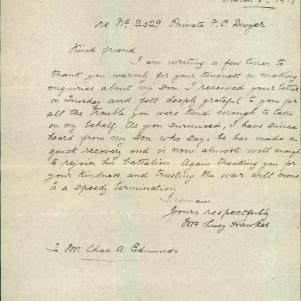 re No 2029 Private F. C Dwyer
Kind friend
I am writing a few lines to
thank you warmly for your kindness in making
enquiries about my Son. I received your letter
on Tuesday and felt deeply grateful to you for
all the trouble you were kind enough to take
on my behalf. As you surmised, I have since
heard from my Son who says he has made a
quick recovery and is now almost well enough
to rejoin his battalion. Again thanking you for
your kindness and trusting the war will come
to a speedy termination
I remain
Yours respectfully
Mrs Lucy Hawkes
To Mr Chas. A. Edmunds